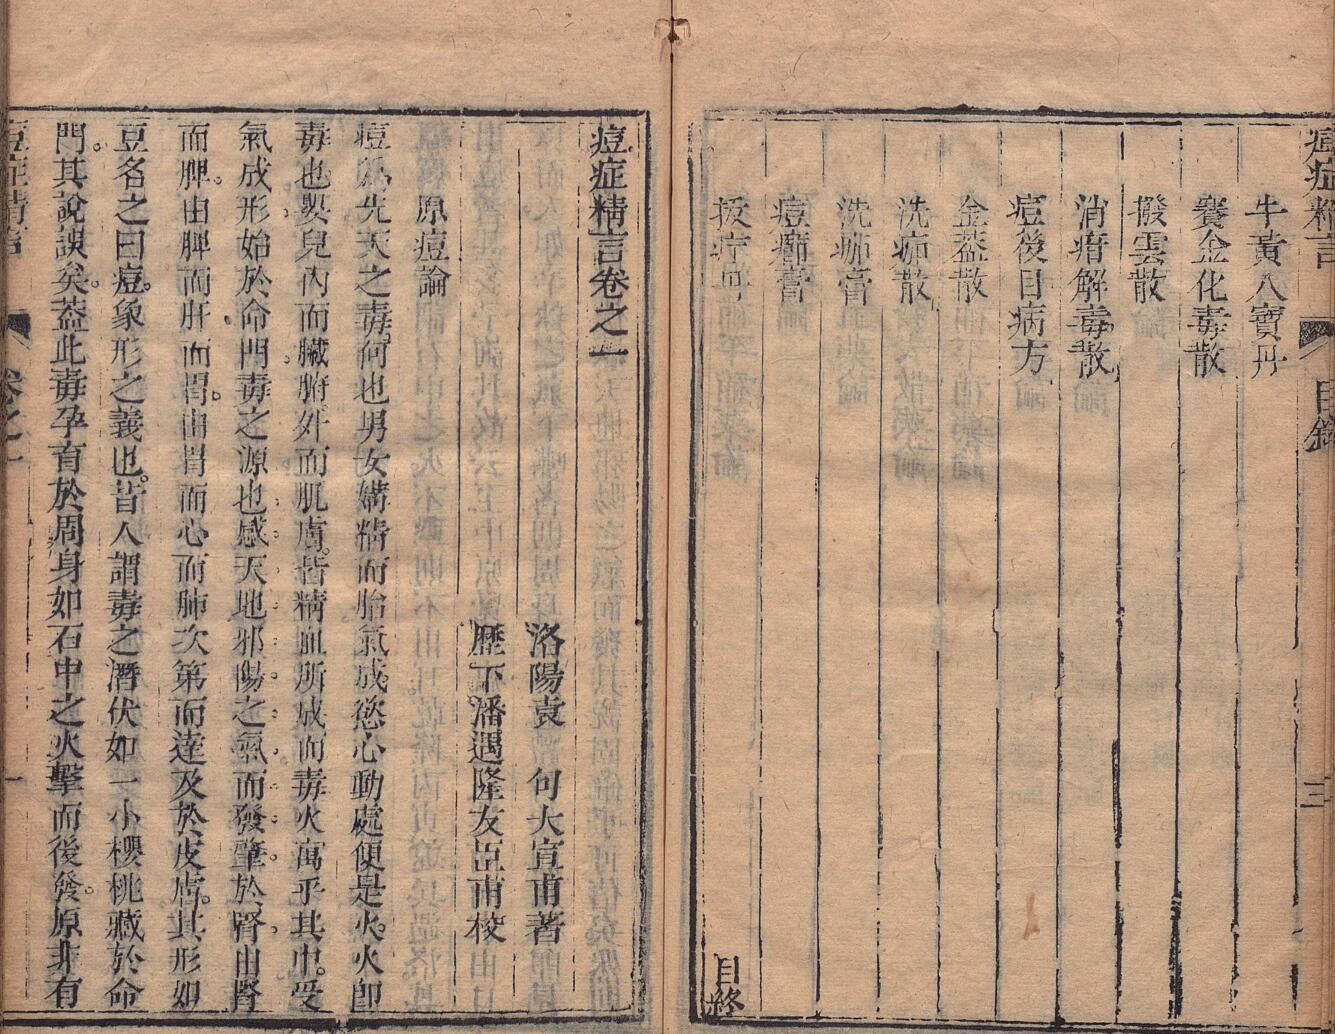 痘症精言
目錄
三
牛黃八寶丹
賽金化毒散
撥雲散
消瘄解毒散
痘後目病方
金蓋散
洗痂散
洗痂膏
痘癤膏
拔疔丹
目終
痘症精言卷之一
洛陽袁 句大宣甫著
歷下潘遇隆友臣甫校
原痘論
痘為先天之毒何也男女媾精而胎氣成慾心動處便是火火即
毒也嬰兒內而臟腑外而肌膚皆精血所成而毒火寓乎其中受
氣成形始於命門毒之源也感天地邪陽之氣而發肇於腎由腎
而脾由脾而肝而胃由胃而心而肺次第而達及於皮膚其形如
豆名之曰痘象形之義也昔人謂毒之潛伏如一小櫻桃藏於命
門其說誤矣蓋此毒孕育於周身如石中之火擊而後發原非有
痘症精言
卷之一
一